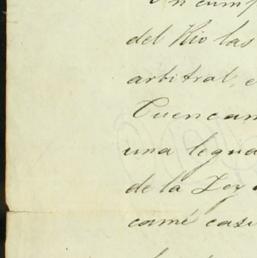 En cump
del Rio las
arbitral, e
Cuencam
una legua
de la Ley
camé casi